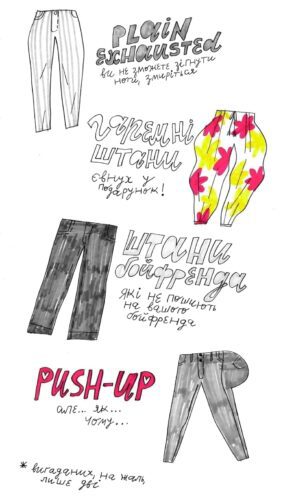 PLAIN
EXHAUSTED
ви не зможете зігнути
ноги, змиріться
гаремні
штани
євнух у
подарунок!
штани
бойфренда
які не пошиють
на вашого
бойфренда
PUSH-UP
але... як...
чому...
* вигаданих, на жаль,
лише дві